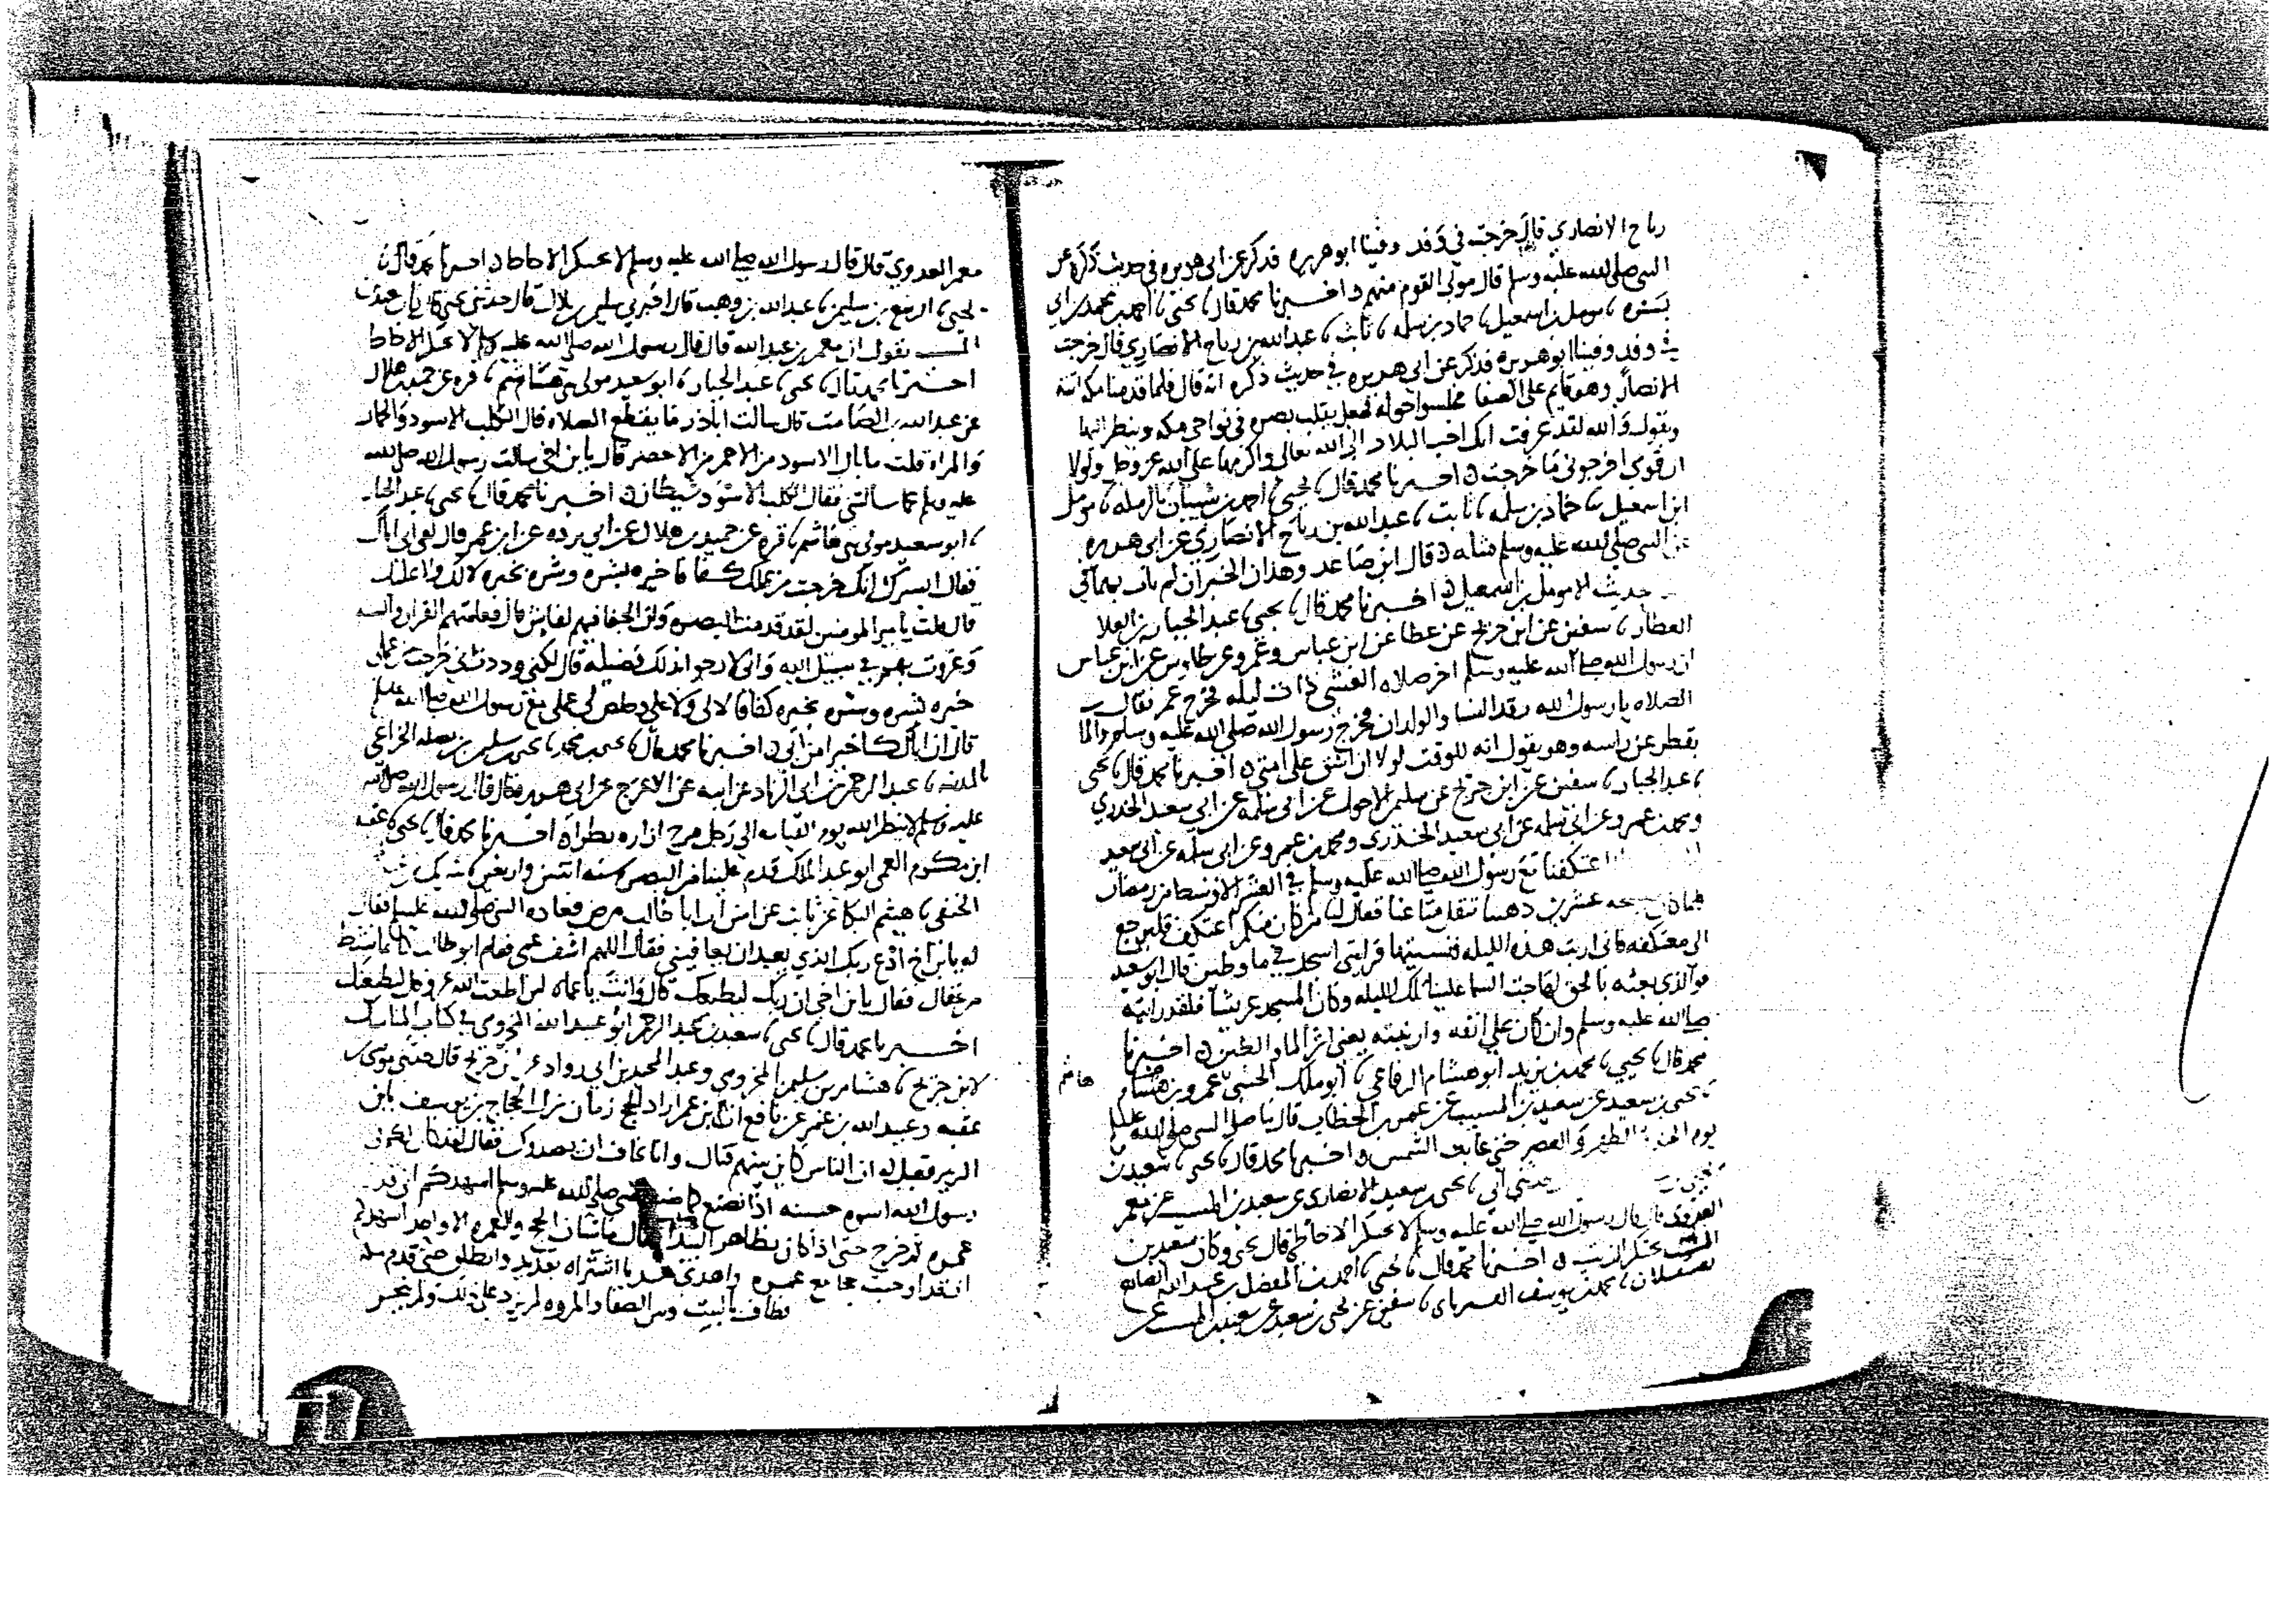 رباح الانصاري قال خرجت في وفد وفينا ابو هريره فذكر عن ابي هريره في حديث ذكره عن
النبي صلى الله عليه وسلم قال مولى القوم منهم اخبرنا محمد قال نا يحيى نا احمد بن محمد بن ابي
بزه نا مومل بن اسمعيل نا حماد بن سلمه نا ثابت نا عبد الله بن رباح الانصاري قال خرجت
في وفد وفينا ابو هريره فذكر عن ابي هريره في حديث ذكره انه قال فلما قدمنا مكه اتته
الانصار وهو قايم على الصفا فجلسوا حوله فجعل يقلب بصره في نواحي مكه وينظر اليها
ويقول والله لقد عرفت انك احب البلاد الى الله تعالى واكرمها على الله عز وجل ولولا
ان قومي اخرجوني ما خرجت اخبرنا محمد قال نا يحيى نا احمد بن شيبان بالرمله نا مومل
ابن اسمعيل نا حماد بن سلمه نا ثابت نا عبد الله بن رباح الانصاري عن ابي هريره
عن النبي صلى الله عليه وسلم مثله قال ابن صاعد وهذان الخبران لم يات بهما في
حديث الا مومل بن اسمعيل اخبرنا محمد قال نا يحيى نا عبد الجبار بن العلا
العطار نا سفين عن ابن جريج عن عطا عن ابن عباس وعمرو عن طاوس عن ابن عباس
ان رسول الله صلى الله عليه وسلم اخر صلاه العشي ذات ليله فخرج عمر فقال
الصلاه يا رسول الله رقد النسا والولدان فخرج رسول الله صلى الله عليه وسلم والما
يقطر عن راسه وهو يقول انه للوقت لولا ان اشق على امتي اخبرنا محمد قال نا يحيى
نا عبد الجبار نا سفين عن ابن جريج عن سليم الاحول عن ابي سلمه عن ابي سعيد الخدري
ومحمد بن عمرو عن ابي سلمه عن ابي سعيد الخدري ومحمد بن عمرو عن ابي سلمه عن ابي سعيد
اعتكفنا مع رسول الله صلى الله عليه وسلم في العشر الاوسط من رمضان
عشرين ذهبنا ننقل متاعنا فقال لنا من كان منكم اعتكف فليرجع
الى معتكفه فاني اريت هذه الليله فنسيتها فرايتني اسجد في ما وطين قال ابو سعيد
فوالذي بعثه بالحق لهاجت السما علينا تلك الليله وكان المسجد عريشا فلقد رايته
صلى الله عليه وسلم وان كان على انفه وارنبته يعني اثر الما والطين اخبرنا
محمد قال نا يحيى نا محمد بن يزيد ابو هشام الرفاعي نا ابو ملك الجنبي عمرو بن هشام
هاشم
نا يحيى بن سعيد عن سعيد بن المسيب عن عمر بن الخطاب قال ما صلى النبي صلى الله عليه
يوم الظهر والعصر حتى غابت الشمس اخبرنا محمد قال نا يحيى نا سعيد بن
حدثني ابي نا يحيى بن سعيد الانصاري عن سعيد بن المسيب عن معمر
العدوي قال قال رسول الله صلى الله عليه وسلم لا يحتكر الا خاطي قال يحيى وكان سعيد بن
المسيب يحتكر الزيت اخبرنا محمد قال نا يحيى نا احمد بن الفضل بن عبيد الله الصايغ
بعسقلان نا محمد بن يوسف الفريابي نا سفين عن يحيى بن سعيد عن سعيد بن المسيب عن
معمر العدوي قال قال رسول الله صلى الله عليه وسلم لا يحتكر الا خاطي اخبرنا محمد قال نا
يحيى نا الربيع بن سليمن نا عبد الله بن وهب قال اخبرني سليمن بن بلال قال حدثني يحيى قال كان سعيد بن
المسيب يقول ان معمر بن عبد الله قال قال رسول الله صلى الله عليه وسلم لا يحتكر الا خاطي
اخبرنا محمد قال نا يحيى نا عبد الجبار نا ابو سعيد مولى بني هاشم نا قره عن حميد بن هلال
عن عبد الله بن الصامت قال سالت اباذر ما يقطع الصلاه قال الكلب الاسود والحمار
والمراه قلت ما بال الاسود من الاحمر من الاحضر قال يا بن اخي سالت رسول الله صلى الله
عليه وسلم كما سالتني فقال الكلب الاسود شيطان اخبرنا محمد قال نا يحيى نا عبد الجبار
نا ابو سعيد مولى بني هاشم نا قره عن حميد بن هلال عن ابي برده عن ابن عمر قال لقي ابي اباك
فقال ايسرك انك خرجت من عملك كفافا خيره بشره وشره بخيره لا لك ولا عليك
قال قلت يا امير المومنين لقد قدمت البصره وان الجفا فيهم لفاش قال فعلمتهم القران والسنه
وغزوت بهم في سبيل الله واني لارجو بذلك فضيله قال لكني وددت اني خرجت من عملي
خيره بشره وشره بخيره كفافا لا لي ولا علي وخلص لي عملي مع رسول الله صلى الله عليه وسلم
قال ان اباك كان خيرا من ابي اخبرنا محمد قال نا يحيى بن محمد نا يحيى بن سليمن بن نضله الخزاعي
بالمدينه نا عبد الرحمن بن ابي الزناد عن ابيه عن الاعرج عن ابي هريره قال قال رسول الله صلى الله
عليه وسلم لا ينظر الله يوم القيامه الى رجل يجر ازاره بطرا اخبرنا محمد قال نا يحيى نا عقبه
ابن مكرم العمي ابو عبد الملك قدم علينا من البصره سنه اثنتين واربعين نا شريك بن
الحنفي نا هيثم البكا عن ثابت عن انس ان ابا طالب مرض فعاده النبي صلى الله عليه وسلم فقال
له يا بن اخي ادع ربك الذي يعبد ان يعافيني فقال اللهم اشف عمي فقام ابو طالب كانما نشط
من عقال فقال يا بن اخي ان ربك ليطيعك قال وانت يا عماه لين اطعت الله عز وجل ليطيعنك
اخبرنا محمد قال نا يحيى نا سعيد بن عبد الرحمن ابو عبيد الله المخزومي في كتاب المناسك
لابن جريج نا هشام بن سليمن المخزومي وعبد المجيد بن ابي رواد عن ابن جريج قال حدثني موسى بن
عقبه وعبيد الله بن عمر عن نافع ان ابن عمر اراد الحج زمان نزل الحجاج بن يوسف بابن
الزبير فقيل له ان الناس كاين بينهم قتال وانا نخاف ان يصدوك فقال لقد كان لكم في
رسول الله اسوه حسنه اذا نصنع كما صنع النبي صلى الله عليه وسلم اشهدكم اني قد
عمره ثم خرج حتى اذا كان بظاهر البيدا قال ما شان الحج والعمره الا واحد اشهدكم
اني قد اوجبت حجا مع عمره واهدى هديا اشتراه بقديد وانطلق حتى قدم مكه
فطاف بالبيت وبين الصفا والمروه لم يزد على ذلك ولم ينحر